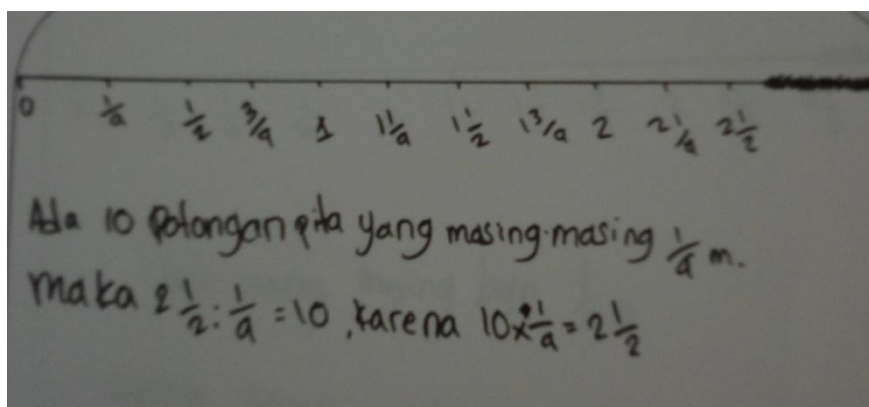 0 1/4 1/2 3/4 1 1 1/4 1 1/2 1 3/4 2 2 1/4 2 1/2
Ada 10 Potongan pita yang masing-masing 1/4 m.
maka 2 1/2 : 1/4 = 10, karena 10 x 1/4 = 2 1/2